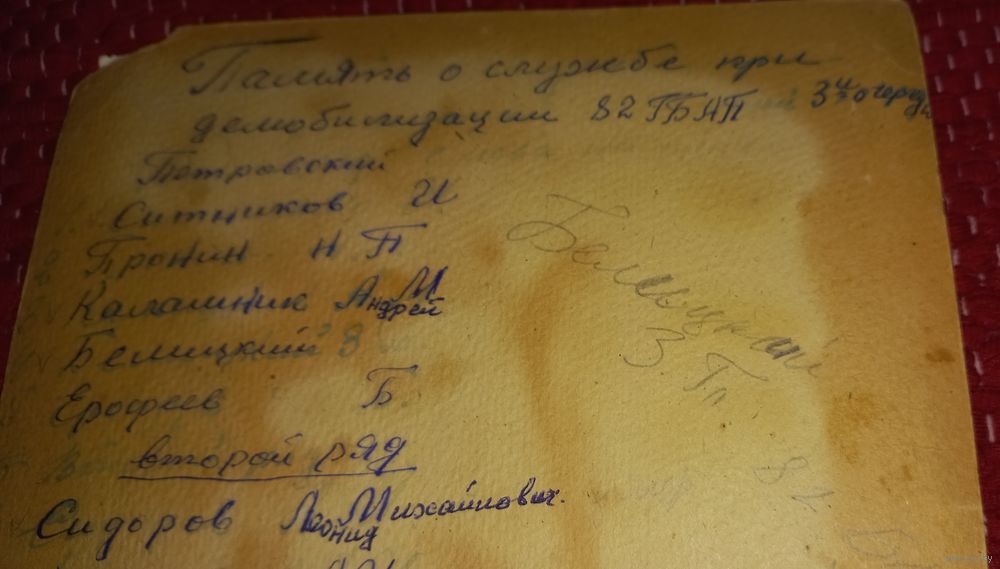 Память о службе при
демобилизации 82 ГБАП 3й очереди
Петровский
Ситников И
Пронин Н П
Калашник Андрей М
Бемицкий З
Ерофеев Б
второй ряд
Сидоров Леонид Михайлович.
З. Г.